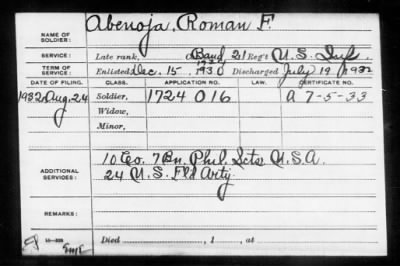 NAME OF SOLDIER: Abenoja, Roman F.
SERVICE: Late rank, Band, 21 Reg't U.S. Inf.
TERM OF SERVICE: Enlisted Dec. 15, 1930 Discharged July 19, 1932
DATE OF FILING. CLASS. APPLICATION NO. LAW. CERTIFICATE NO.
1932 Aug. 24 Soldier, 1724016 A 7-5-33
Widow,
Minor,
ADDITIONAL SERVICES: 10 Co. 7 Bn. Phil. Scts U.S.A.
24 U.S. Fld Arty.
REMARKS:
Died , 1 , at